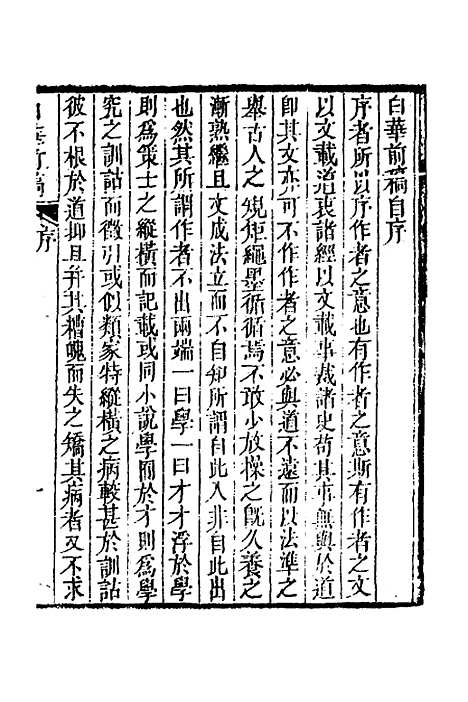 白華前稿自序
序者所以序作者之意也有作者之意斯有作者之文
以文載道衷諸經以文載事裁諸史苟其事無與於道
即其文亦可不作作者之意必與道不遠而以法準之
舉古人之規矩繩墨循循焉不敢少放操之既久養之
漸熟繼且文成法立而不自知所謂自此入非自此出
也然其所謂作者不出兩端一曰學一曰才才浮於學
則為策士之縱橫而記載或同小說學囿於才則為學
究之訓詁而徵引或似類家特縱橫之病較甚於訓詁
彼不根於道抑且幷其糟魄而失之矯其病者又不求
白華前稿 序 一